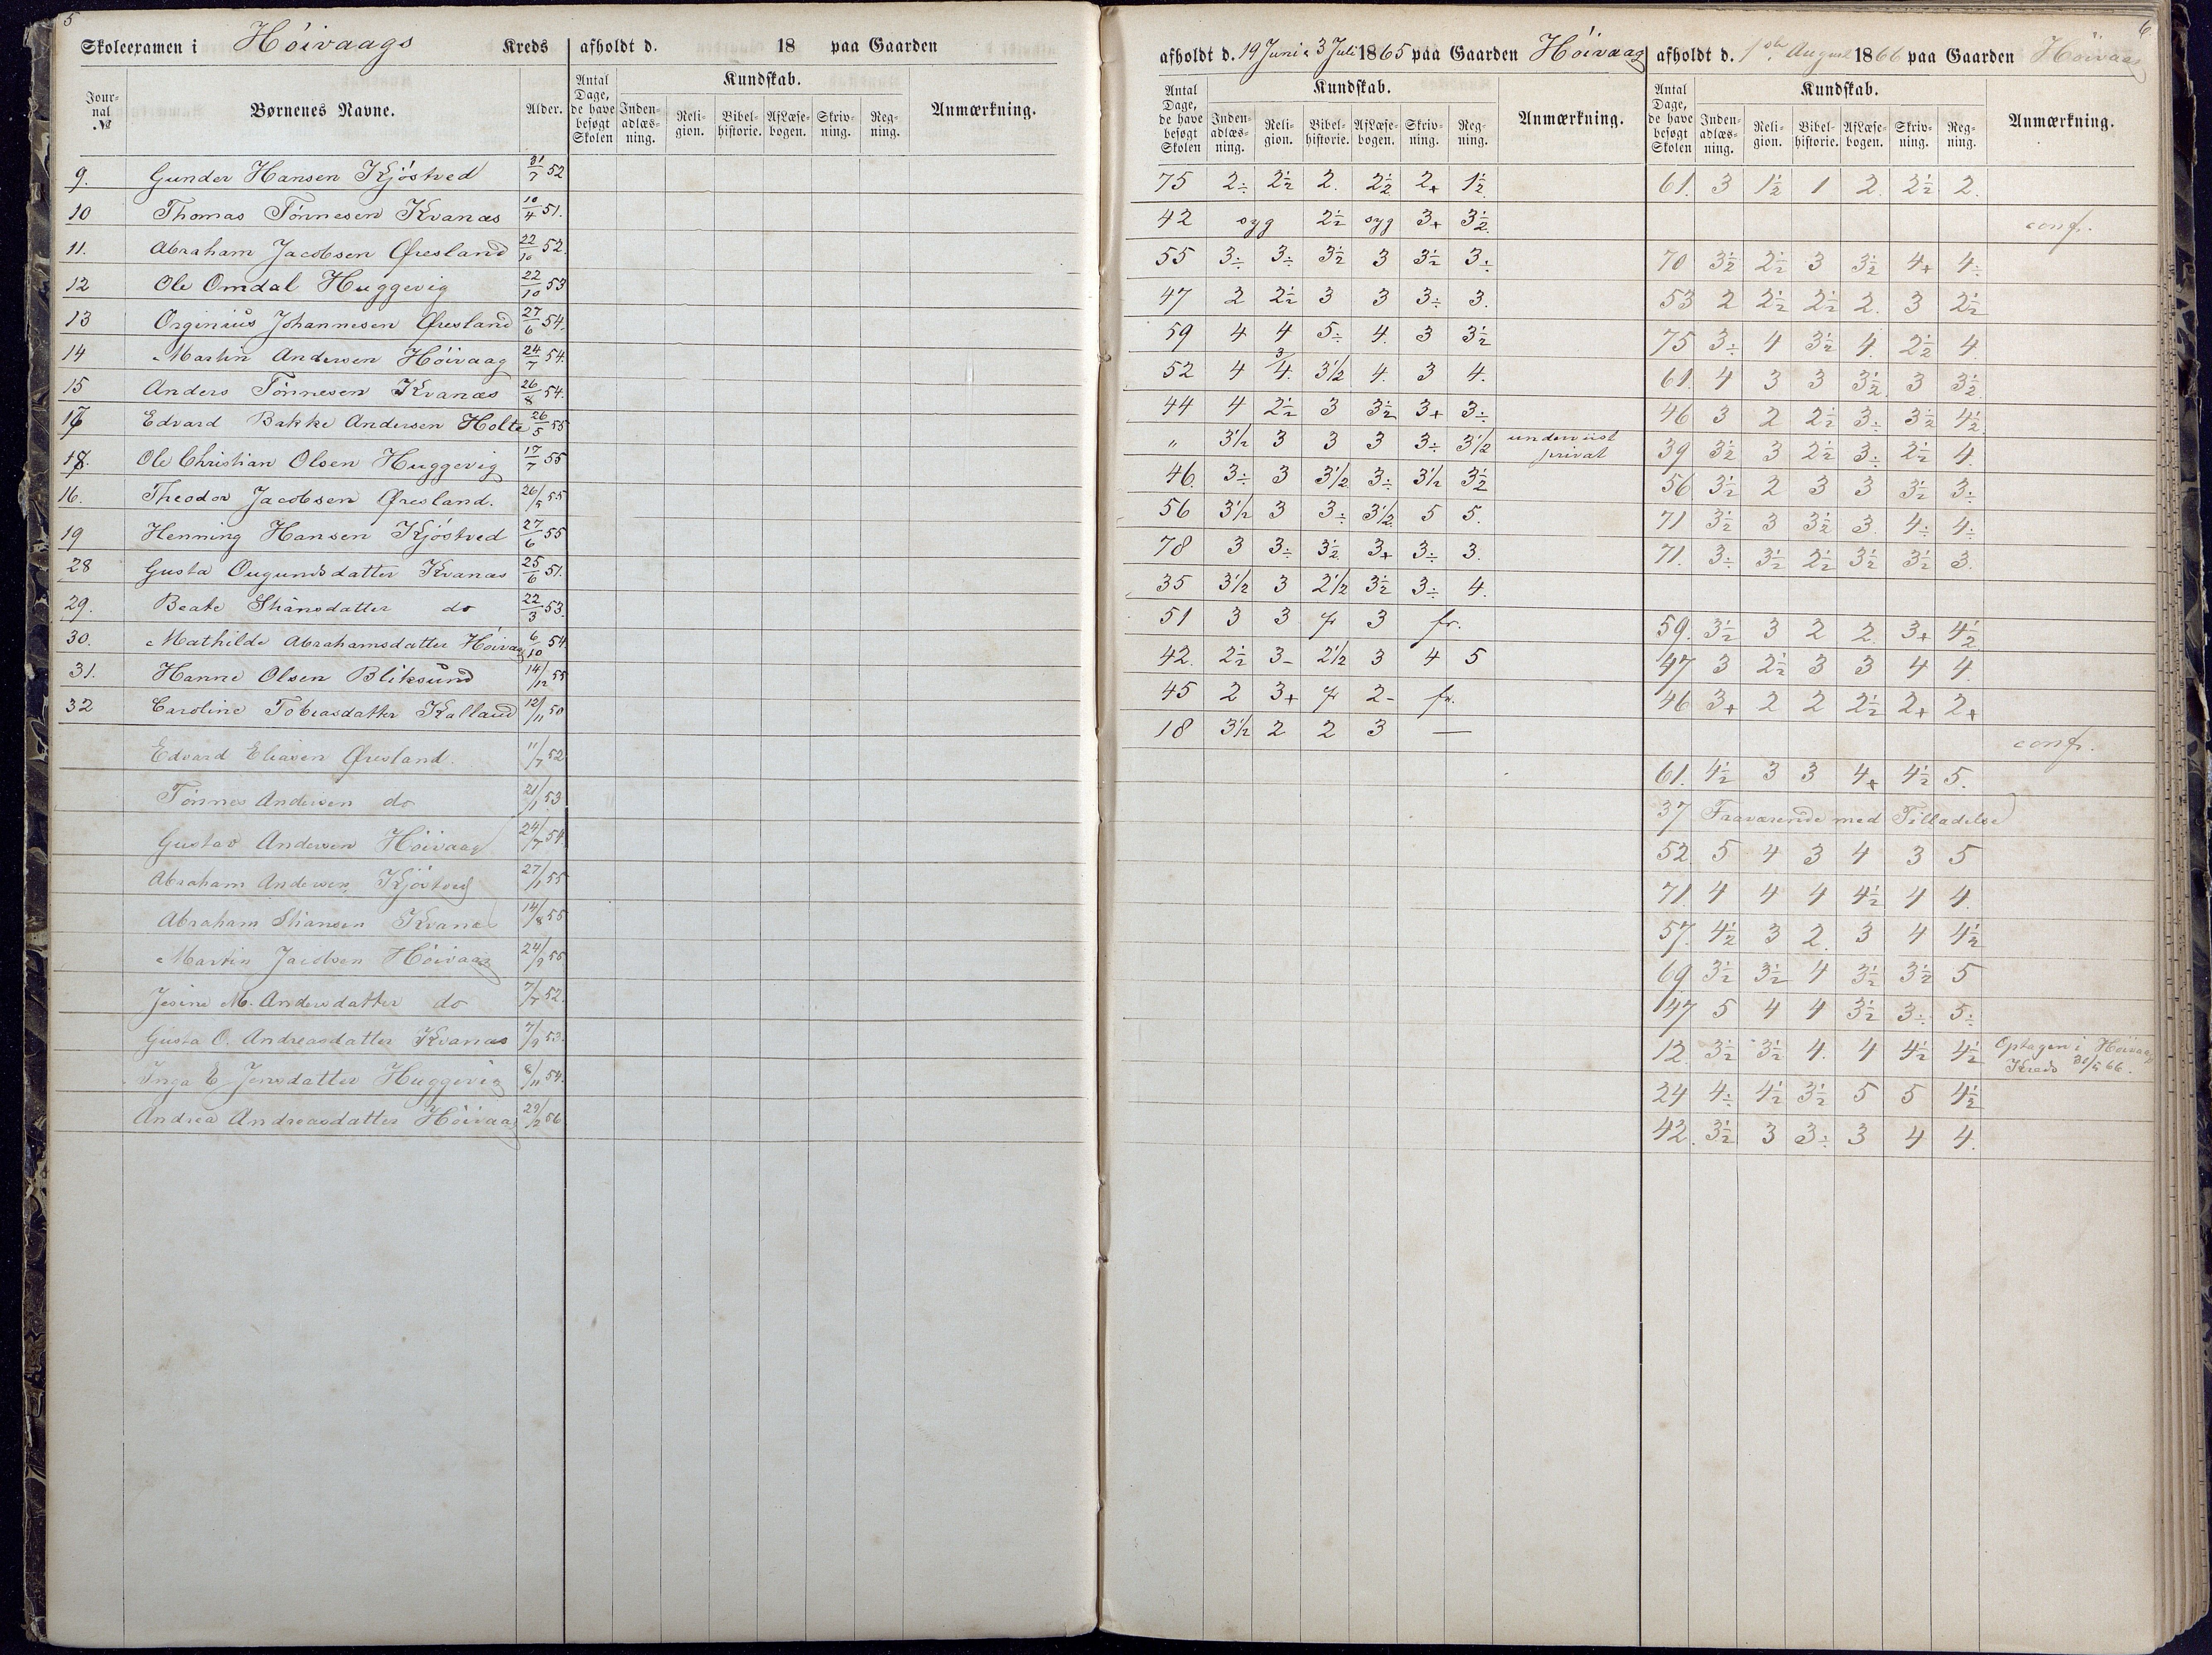 5
Skoleexamen i Höivaags Kreds afholdt d. 18 paa Gaarden
Journal № Børnenes Navne. Alder. Antal Dage, de have besøgt Skolen Kundskab. Indenadlæsning. Religion. Bibelhistorie. Aflæsebogen. Skrivning. Regning. Anmærkning.
9. Gunder Hansen Kjöstved 31/7 52
10 Thomas Tönnesen Kvanæs 10/4 51.
11. Abraham Jacobsen Øresland 22/10 52.
12 Ole Omdal Huggevig 22/10 53
13 Orginius Johannesen Øresland 27/6 54.
14 Martin Andersen Höivaag 24/7 54.
15 Anders Tönnesen Kvanæs 26/8 54.
17 Edvard Bakke Andersen Holte 26/5 55
18. Ole Christian Olsen Huggevig 17/7 55
16. Theodor Jacobsen Øresland. 26/5 55
19 Henning Hansen Kjöstved 27/6 55
28 Gusta Ougundsdatter Kvanæs 25/6 51.
29. Beate Stiansdatter do 22/3 53.
30. Mathilde Abrahamsdatter Höivaag 6/10 54.
31. Hanne Olsen Bliksund 14/12 55
32 Caroline Tobiasdatter Kalland 12/11 50
Edvard Eliasen Øresland. 11/7 52
Tönnes Andersen do 21/1 53
Gustav Andersen Höivaag 24/7 54
Abraham Andersen Kjöstved 27/1 55
Abraham Stiansen Kvanæs 14/8 55
Martin Jacobsen Höivaag 24/9 55
Jesine M. Andersdatter do 7/7 52.
Gusta O. Andreasdatter Kvanæs 7/9 53.
Inga E Jensdatter Huggevig 8/11 54.
Andrea Andreasdatter Höivaag 29/2 56
6.
afholdt d. 19 Juni & 3 Juli 1865 paa Gaarden Höivaag
Antal Dage, de have besøgt Skolen Kundskab. Indenadlæsning. Religion. Bibelhistorie. Aflæsebogen. Skrivning. Regning. Anmærkning.
75 2÷ 2½ 2. 2½ 2+ 1½
42 syg 2½ syg 3+ 3½
55 3÷ 3÷ 3½ 3 3½ 3÷
47 2 2½ 3 3 3÷ 3.
59 4 4 5÷ 4. 3 3½
52 4 3/4. 3½ 4. 3 4.
44 4 2½ 3 3½ 3+ 3÷
„ 3½ 3 3 3 3÷ 3½ underviist privat
46. 3÷ 3 3½ 3÷ 3½ 3½
56 3½ 3 3÷ 3½ 5 5.
78 3 3÷ 3½ 3+ 3÷ 3.
35 3½ 3 2½ 3½ 3÷ 4.
51 3 3 fr 3 fr.
42. 2½ 3- 2½ 3 4 5
45 2 3+ fr 2- fr.
18 3½ 2 2 3 —
afholdt d. 1ste August 1866 paa Gaarden Höivaag
Antal Dage, de have besøgt Skolen Kundskab. Indenadlæsning. Religion. Bibelhistorie. Aflæsebogen. Skrivning. Regning. Anmærkning.
61. 3 1½ 1 2. 2½ 2.
conf.
70 3½ 2½ 3 3½ 4+ 4÷
53 2 2½ 2½ 2. 3 2½
75 3÷ 4 3½ 4. 2½ 4.
61. 4 3 3 3½ 3 3½
46 3 2 2½ 3÷ 3½ 4½
39 3½ 3 2½ 3÷ 2½ 4.
56 3½ 2 3 3 3½ 3÷
71 3½ 3 3½ 3. 4÷ 4÷
71. 3÷ 3½ 2½ 3½ 3½ 3.
59. 3½ 3 2 2. 3+ 4½
47 3 2½ 3 3 4 4.
46 3+ 2 2 2½ 2+ 2+
conf.
61. 4½ 3 3 4+ 4½ 5.
37 Fraværende med Tilladelse
52. 5 4 3 4 3 5
71. 4 4 4 4½ 4 4.
57. 4½ 3 2. 3 4 4½
69 3½ 3½ 4 3½ 3½ 5
47 5 4 4 3½ 3÷ 5÷
12. 3½ 3½ 4. 4 4½ 4½ Optagen i Höivaag Kreds 30/5 66.
24 4÷ 4½ 3½ 5 5 4½
42. 3½ 3 3÷ 3 4 4.